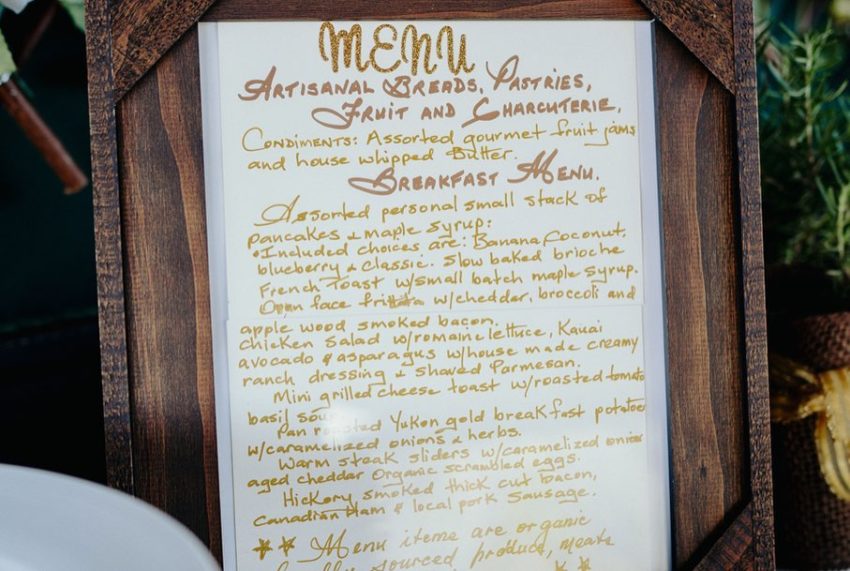 MENU
ARTISANAL BREADS, PASTRIES,
FRUIT AND CHARCUTERIE.
CONDIMENTS: Assorted gourmet fruit jams
and house whipped Butter.
BREAKFAST MENU.
Assorted personal small stack of
pancakes & maple syrup:
•Included choices are: Banana Coconut,
blueberry & Classic. Slow baked brioche
French Toast w/small batch maple syrup.
Open face frittata w/cheddar, broccoli and
apple wood smoked bacon.
Chicken Salad w/romaine lettuce, Kauai
avocado & asparagus w/house made creamy
ranch dressing & shaved Parmesan.
Mini grilled cheese toast w/roasted tomato
basil
Pan roasted Yukon gold breakfast potatoes
w/caramelized onions & herbs.
Warm steak sliders w/caramelized onions
aged cheddar Organic scrambled eggs.
Hickory smoked thick cut bacon,
Canadian Ham & local pork Sausage.
Menu items are organic
sourced produce, meats